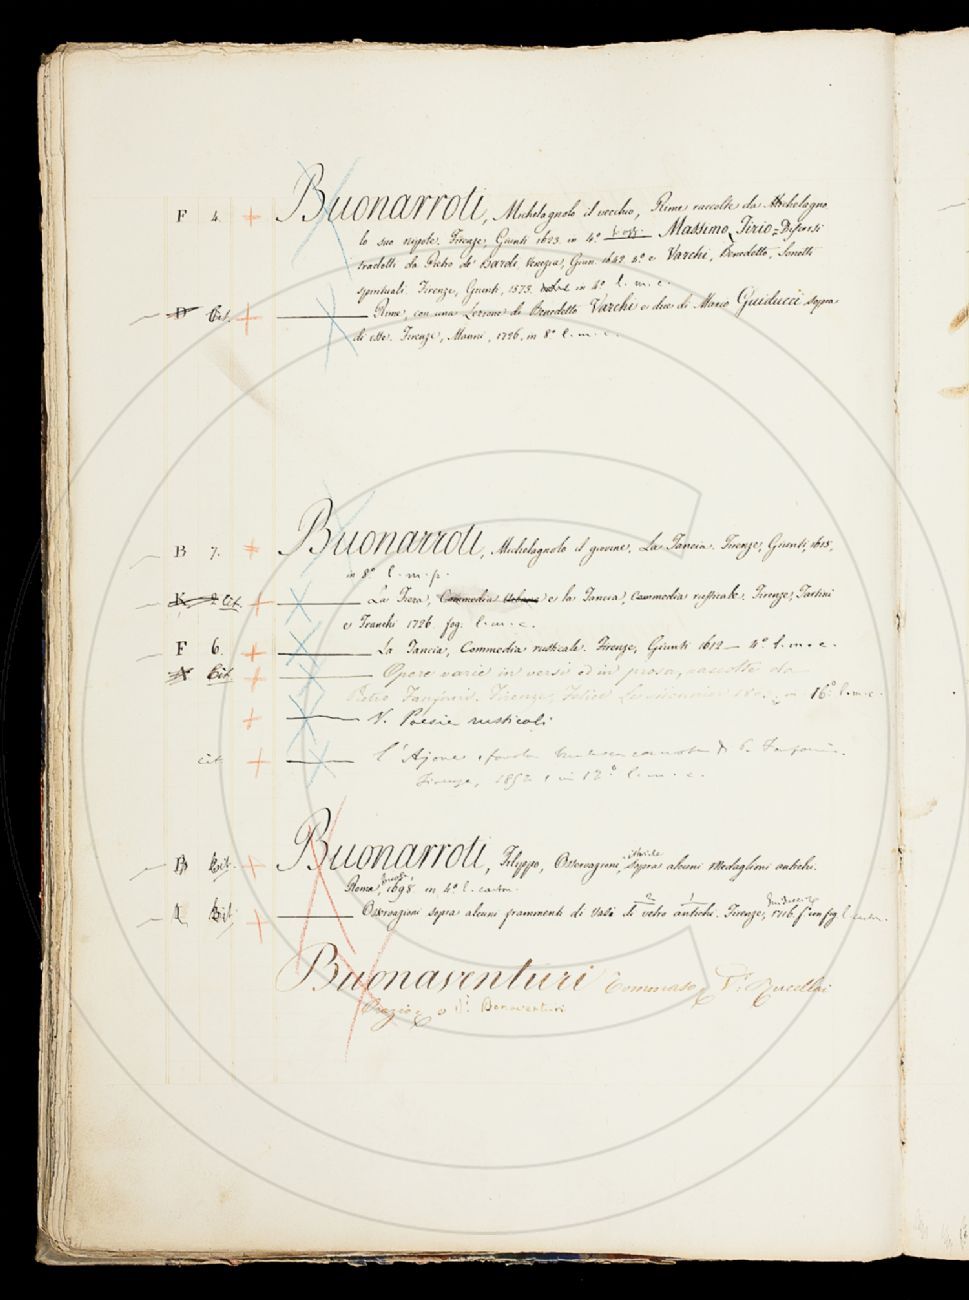 F 4. + Buonarroti, Michelagnolo il vecchio, Rime raccolte da Michelagno
lo suo nepote. Firenze, Giunti 1623. in 4.° Massimo Tirio = Discorsi
tradotti da Pietro de' Bardi, Venezia, Giun. 1642. 4.° e Varchi, Benedetto, Sonetti
spirituali. Firenze, Giunti, 1573. in 4.° l. m. c.
D Cit. + Rime, con una Lezione di Benedetto Varchi e due di Mario Guiducci sopra
di esse. Firenze, Manni, 1726. in 8.° l. m. c.
B 7. + Buonarroti, Michelagnolo il giovine, La Tancia. Firenze, Giunti, 1615,
in 8.° l. m. p.
K. Cit. + La Fiera, Commedia urbana e la Tancia, commedia rusticale. Firenze, Tartini
e Franchi 1726. fog. l. m. c.
F 6. + La Tancia, Commedia rusticale. Firenze, Giunti 1612 — 4.° l. m. c.
Cit. + Opere varie in versi ed in prosa, raccolte da
Pietro Fanfani. Firenze, Felice Lemonnier in 16.° l. m. c.
+ V. Poesie rusticali
cit. + l'Ajone, favola P. Fanfani.
Firenze, 1852, in 12.° l. m. c.
B Cit. + Buonarroti, Filippo, Osservazioni, sopra alcuni Medaglioni antichi.
Roma, 1698. in 4.° l. carton.
Cit. + Osservazioni sopra alcuni frammenti di Vasi di vetro antichi. Firenze, 1716. fog. l. carton.
Buonaventuri Tommaso, V. Rucellai
Orazio, Bonaventuri